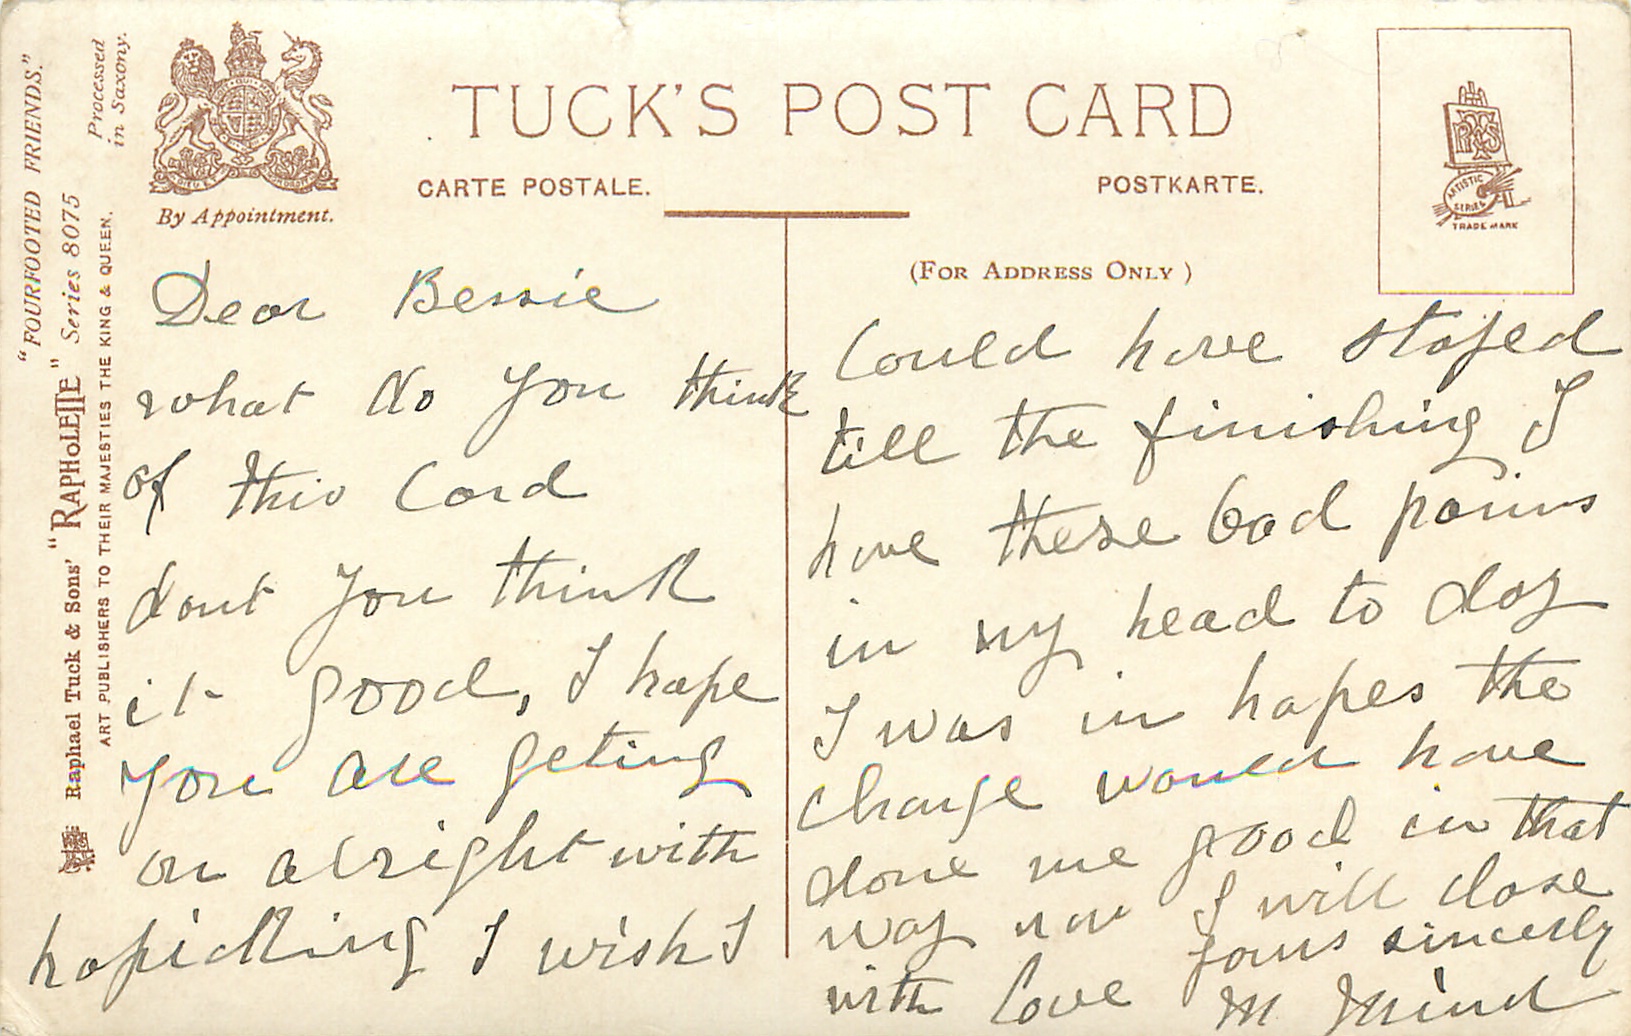 "FOURFOOTED FRIENDS."
Processed
in Saxony.
Raphael Tuck & Sons' "RAPHOLETTE" Series 8075
ART PUBLISHERS TO THEIR MAJESTIES THE KING & QUEEN.
By Appointment.
TUCK'S POST CARD
CARTE POSTALE.
POSTKARTE.
(FOR ADDRESS ONLY)
ARTISTIC
SERIES
TRADE MARK
Dear Bessie
what do you think
of this Card
dont you think
it good, I hope
you are geting
on alright with
hopicking I wish I
Could have stayed
till the finishing I
have these bad pains
in my head to day
I was in hopes the
change would have
done me good in that
way now I will close
with love yours sincerly
M